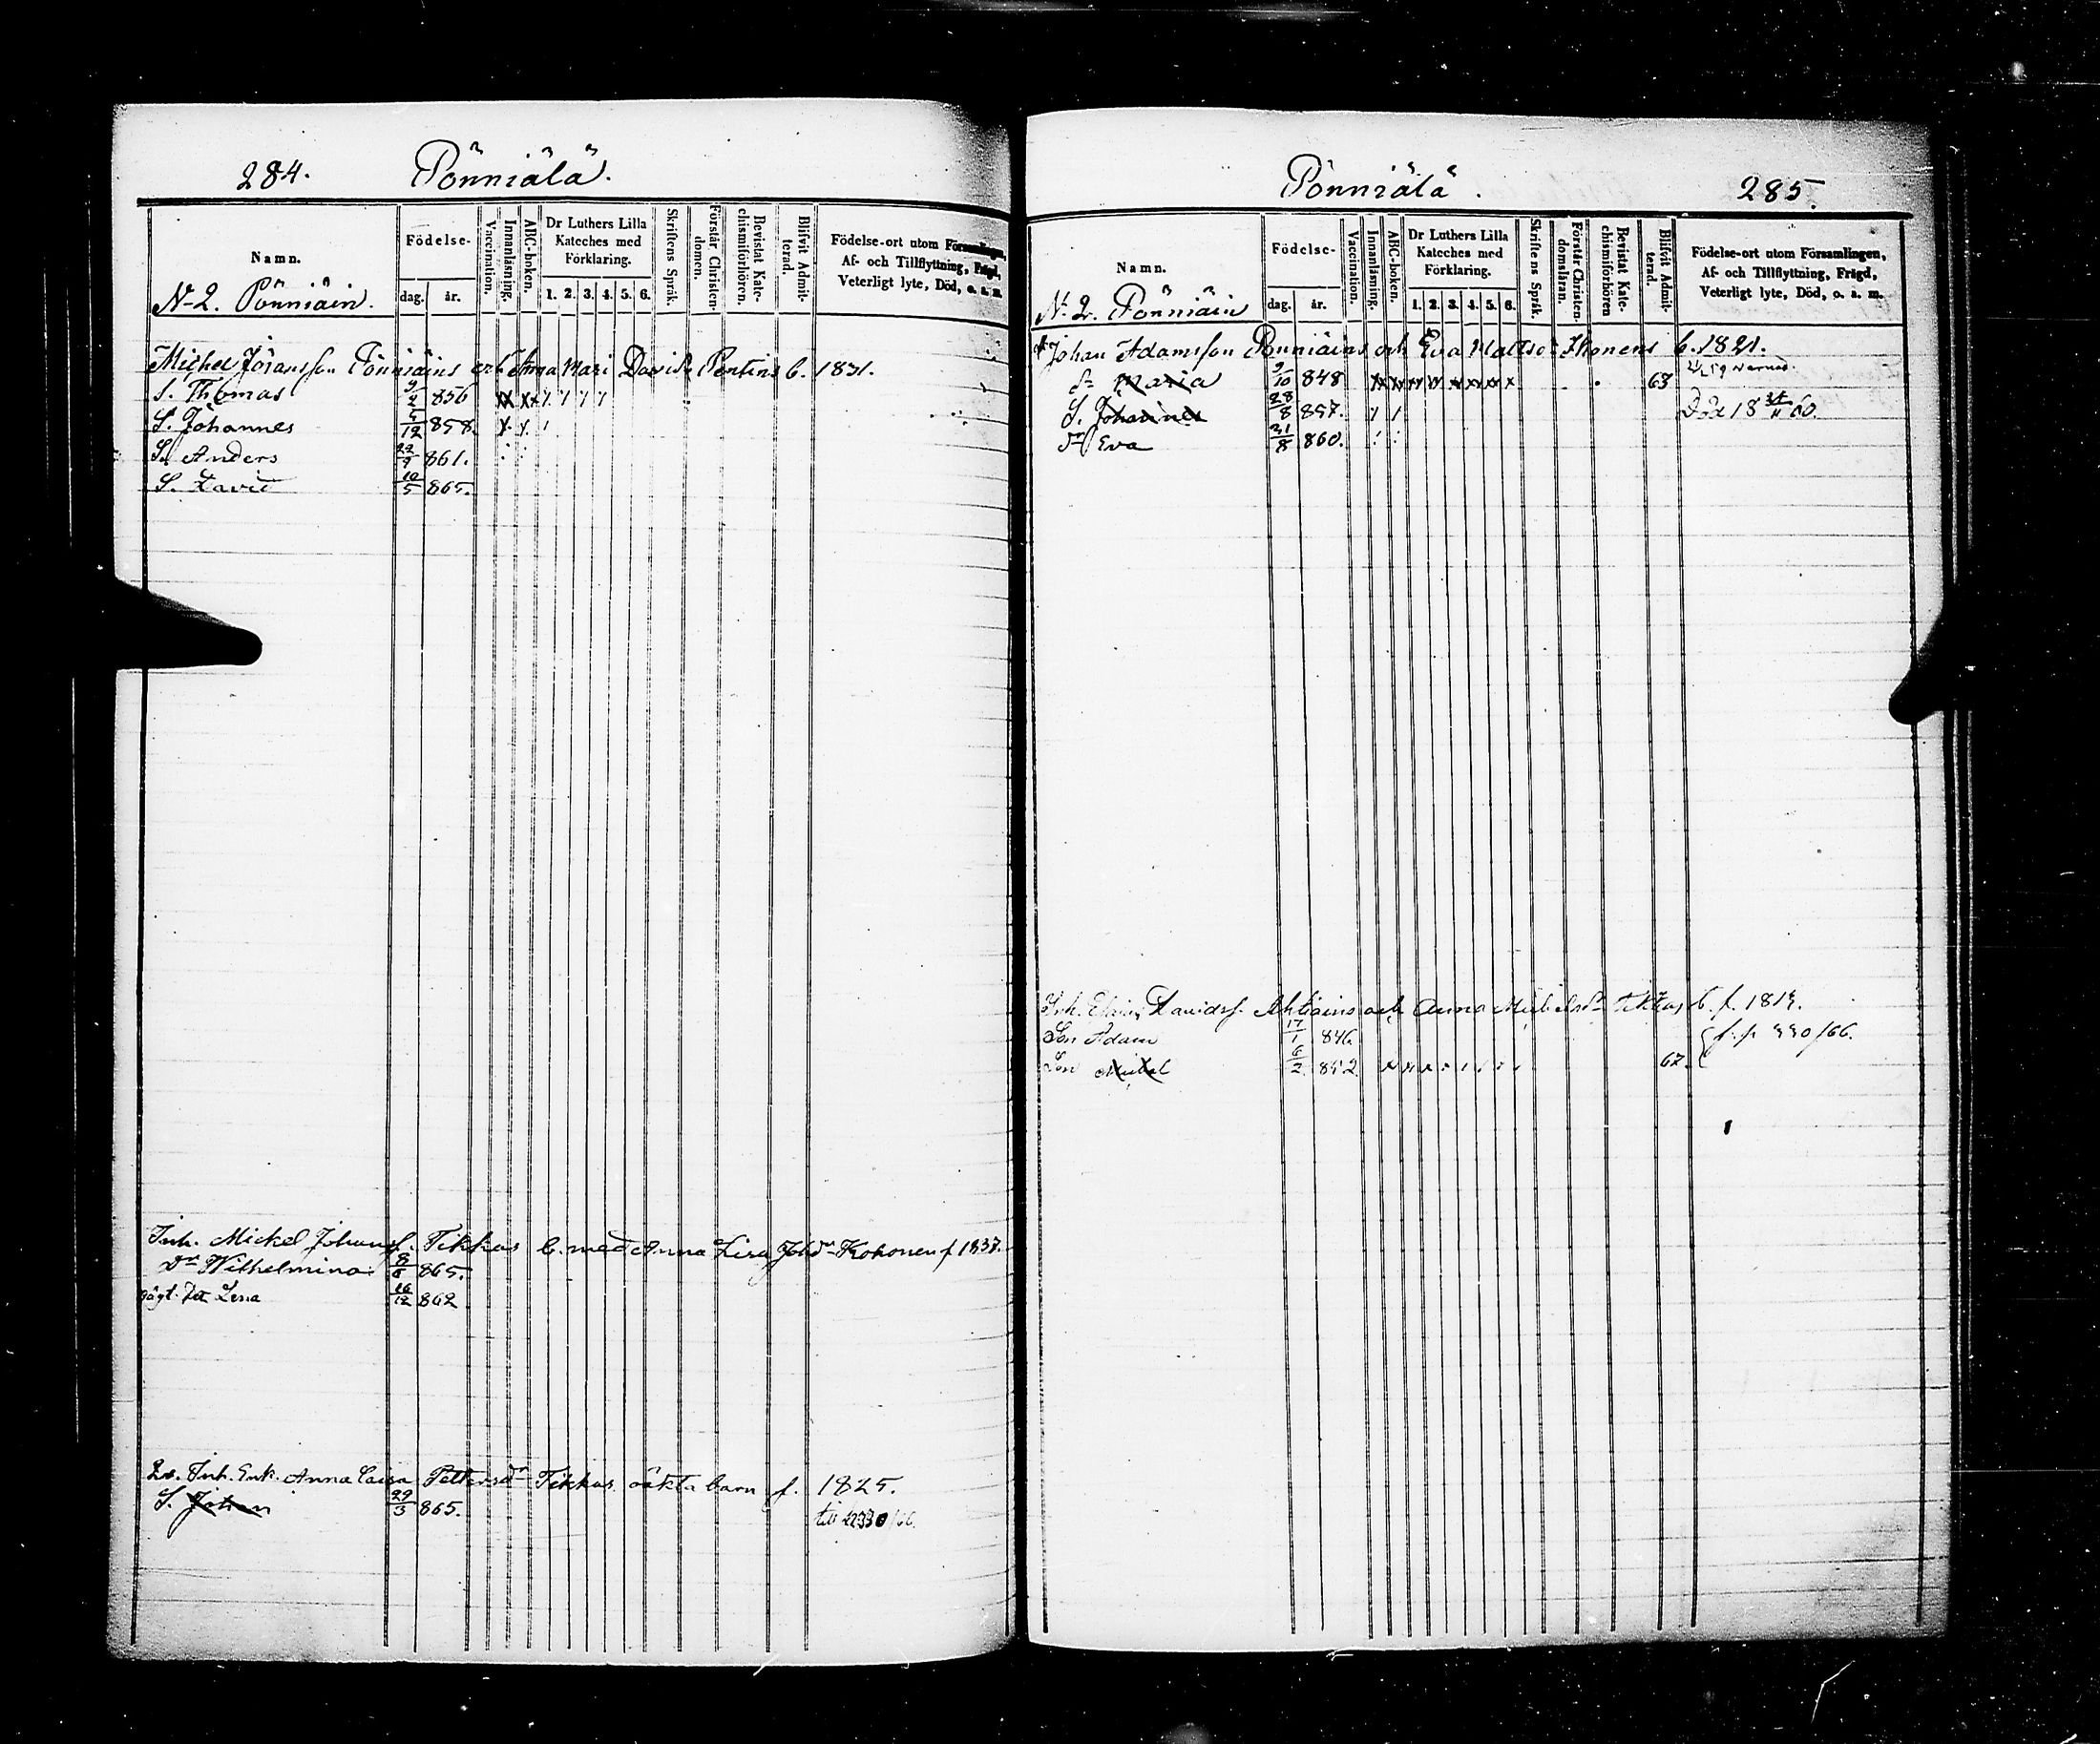 284. Pönniälä.
Namn.
Födelse-
dag. år.
Vaccination.
Innanläsning.
ABC-boken.
Dr Luthers Lilla Kateches med Förklaring.
1. 2. 3. 4. 5. 6.
Skriftens Språk.
Förstår Christen-domen.
Bevistat Kate-chismiförhören.
Blifvit Admit-terad.
Födelse-ort utom Församlingen,
Af- och Tillflyttning, Frägd,
Veterligt lyte, Död, o. s. m.
N-2. Pönniäin.
Michel Jöransson Pönniäins och Anna Mari Davidsr Pentins b. 1831.
S. Thomas 9/2 856 xx xx 1 1 1 1
S. Johannes 5/12 858. x x 1
S. Anders 22/9 861.
S. David 10/5 865.
Inh. Mickel Johansf. Tikkas b. med Anna Lisa Johdr Krohonen f 1837.
Dr Wilhelmina 8/8 865.
Lena 16/12 862
Inh. Enk. Anna Caisa Pettersdr Tikkas oäkta barn f. 1825.
S. Johan 29/3 865.
Pönniälä. 285.
Namn.
Födelse-
dag. år.
Vaccination.
Innanläsning.
ABC-boken.
Dr Luthers Lilla Kateches med Förklaring.
1. 2. 3. 4. 5. 6.
Skriftens Språk.
Förstår Christen-domsläran.
Bevistat Kate-chismiförhören
Blifvit Admit-terad.
Födelse-ort utom Församlingen,
Af- och Tillflyttning, Frägd,
Veterligt lyte, Död, o. s. m.
N. 2. Pönniäin
Johan Adamsson Pönniäins och Eva Ikonens b. 1821.
dr Maria 9/10 848 xx xx xx xx xx xx xx x 63
S. Johannes 28/8 857. 1 1 Död 18 60.
dr Eva 31/8 860.
Inh. Davidsf. Ahtiains och Anna Tikkas b. f.
Son Adam 17/1 846 f. p. 330/66.
Son Mickel 6/2 852 67.